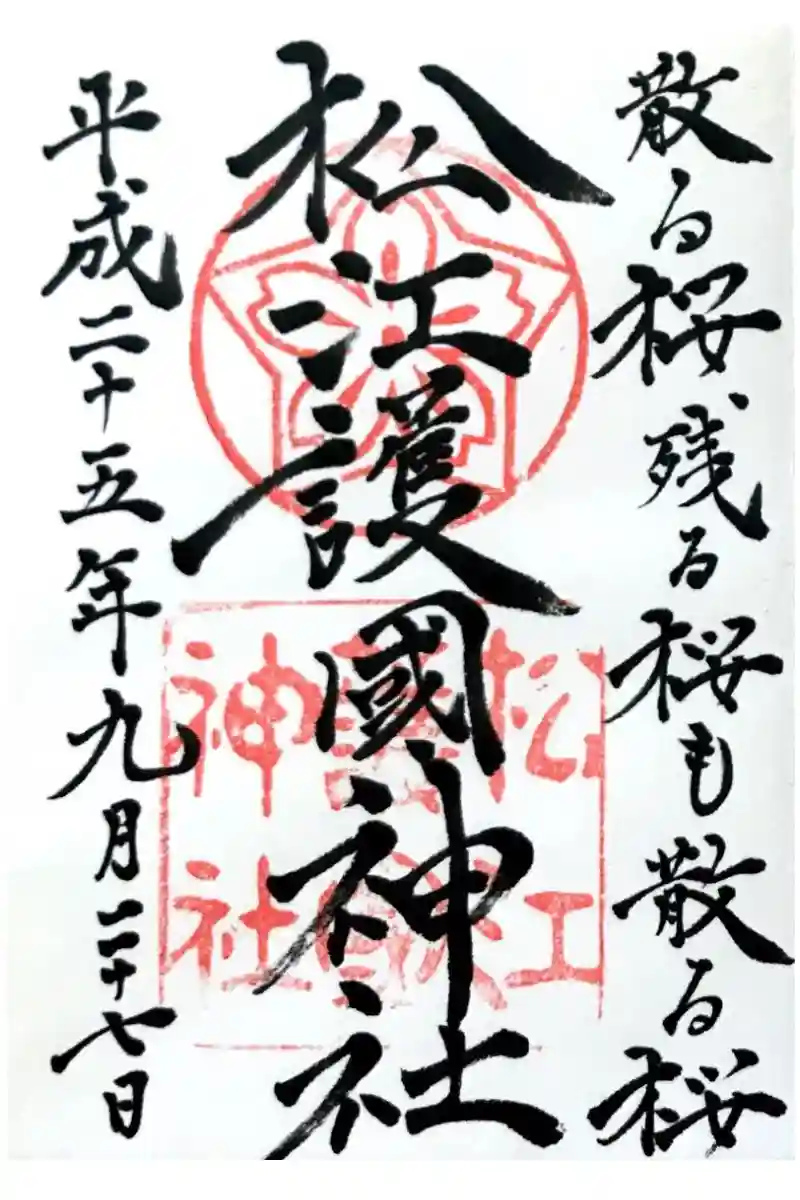 散る桜残る桜も散る桜
松江護國神社
平成二十五年九月二十七日
松江
護國
神社